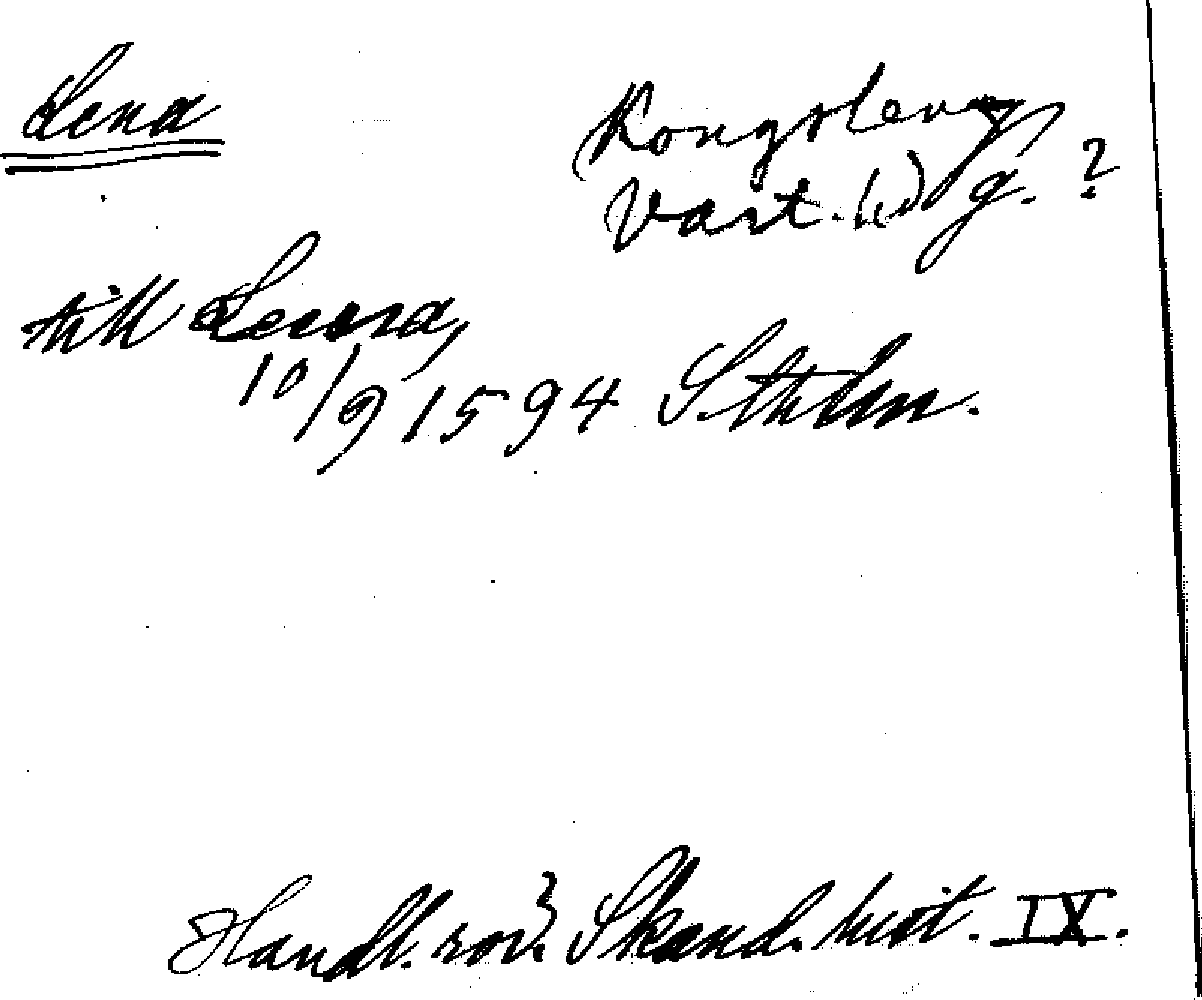 Lena
Kongslena,
Vart. hd g. ?
till Leena,
10/9 1594 Sthlm.
Handl. rör. Skand. hist. IX.